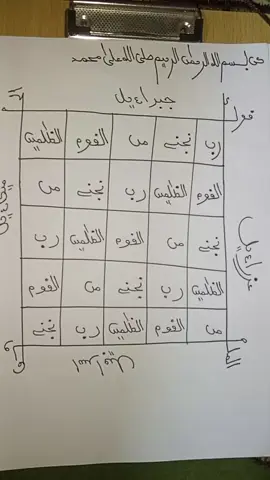 بسم الله الرحمن الرحيم صلى الله على محمد
جبرائيل
رب نجني من القوم الظلمين
القوم الظلمين رب نجني من
نجني من القوم الظلمين رب
الظلمين رب نجني من القوم
من القوم الظلمين رب نجني
عزرائيل
اسرافيل